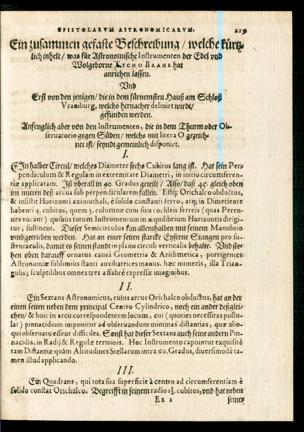 EPISTOLARVM ASTRONOMICARVM. 219
Ein zusammen gefaste Beschreibung / welche kürtz-
lich inhelt / was für Astronomische Instrumenten der Edel vnd
Wolgeborne TYCHO BRAHE hat
anrichen lassen.
Vnd
Erst von den jenigen / die in dem fürnemsten Hauß am Schloß
Vraniburg, welchs hernacher delinirt wirdt /
gefunden werden.
Anfenglich aber von den Instrumenten, die in dem Thurm oder Ob-
seruatorio gegen Süden / welchs mit litera O gezeich-
net ist / seyndt gemeinlich disponirt.
I.
EIn halber Circul / welches Diameter sechs Cubitos lang ist. Hat sein Per-
pendiculum & Regulam in extremitate Diametri, in initio circumferen-
tiæ applicirt. Ist vberall in 90. Gradus geteilt / Also / daß 45. gleich oben
im mitten deß arcus sub perpendicularem fallen. Estq; Orichalco obductus,
& insistit Horizonti azimuthali, é solido constanti ferro, atq; in Dimetiente
habenti 4. cubitos, quem 5. columnæ cum suis cochleis ferreis (quas Penes-
vocant) quibus totum Instrumentum in Æquilibrium Horizontis dirigi-
tur, sustinent. Dieser Semicirculus kan allenthalben mit seinem Manubrio
vmbgewendet werden. Hat an einer seiten starcke Eyserne Stangen pro fir-
stellaminis, damit es seinen standt in plano circuli verticalis behalte. Vnd ste-
hen oben darauff ornatus causâ Geometria & Arithmetica, porrigentes
Astronomiæ sublimius stanti auxiliatrices manus. hæc numeris, illa Trian-
gulis, sculptilibus omnes tres affabré expressæ imaginibus.
II.
Ein Sextans Astronomicus, cuius arcus Orichalco obductus, hat an der
einen seiten neben dem principal Centro Cylindrico, noch ein ander desglei-
chen / & huic in arcu correspondentem locum, cui (quoties necessitas postu-
lat) pinnacidium imponitur ad obseruandum minimas distantias, quæ alio-
quin obseruatu essent difficiles. Sonst hat dieser Sextans auch seine andern Pin-
nacidia, in Radij & Regulæ terminis. Hoc Instrumento capiuntur exquisi-
tam Distantiæ quàm Altitudines Stellarum intra 60. Gradus, diuersimodè ta-
men illud applicando.
III.
Ein Quadrans, qui tota sua superficie à centro ad circumferentiam è
solido constat Orichalco. Begreifft in seinem radio 1⅔. cubitos, vnd hat neben
Ee 2 seine